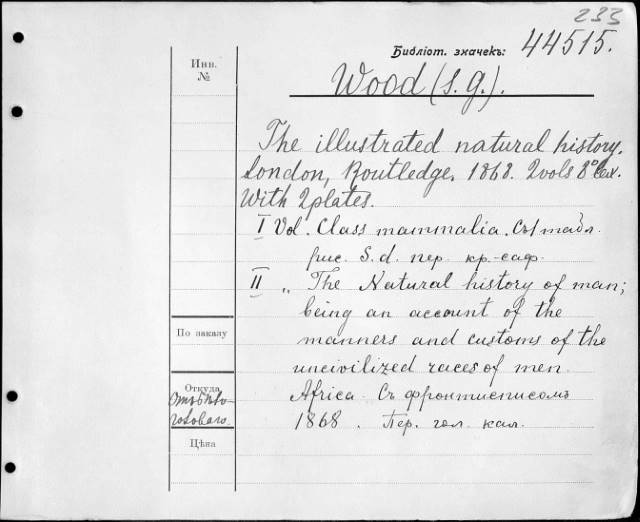 233
Библіот. значекъ: 44515.
Инв.
№
Wood (S. G.).
The illustrated natural history.
London, Routledge. 1868. 2 vols 8° Lex.
With 2 plates.
I Vol. Class mammalia. Съ 1 табл.
рис. S. d. пер. кр.-саф.
II „ The Natural history of man;
being an account of the
manners and customs of the
uncivilized races of men.
Africa. Съ фронтисписомъ
1868. Пер. гол. кал.
По заказу
Откуда
Цѣна